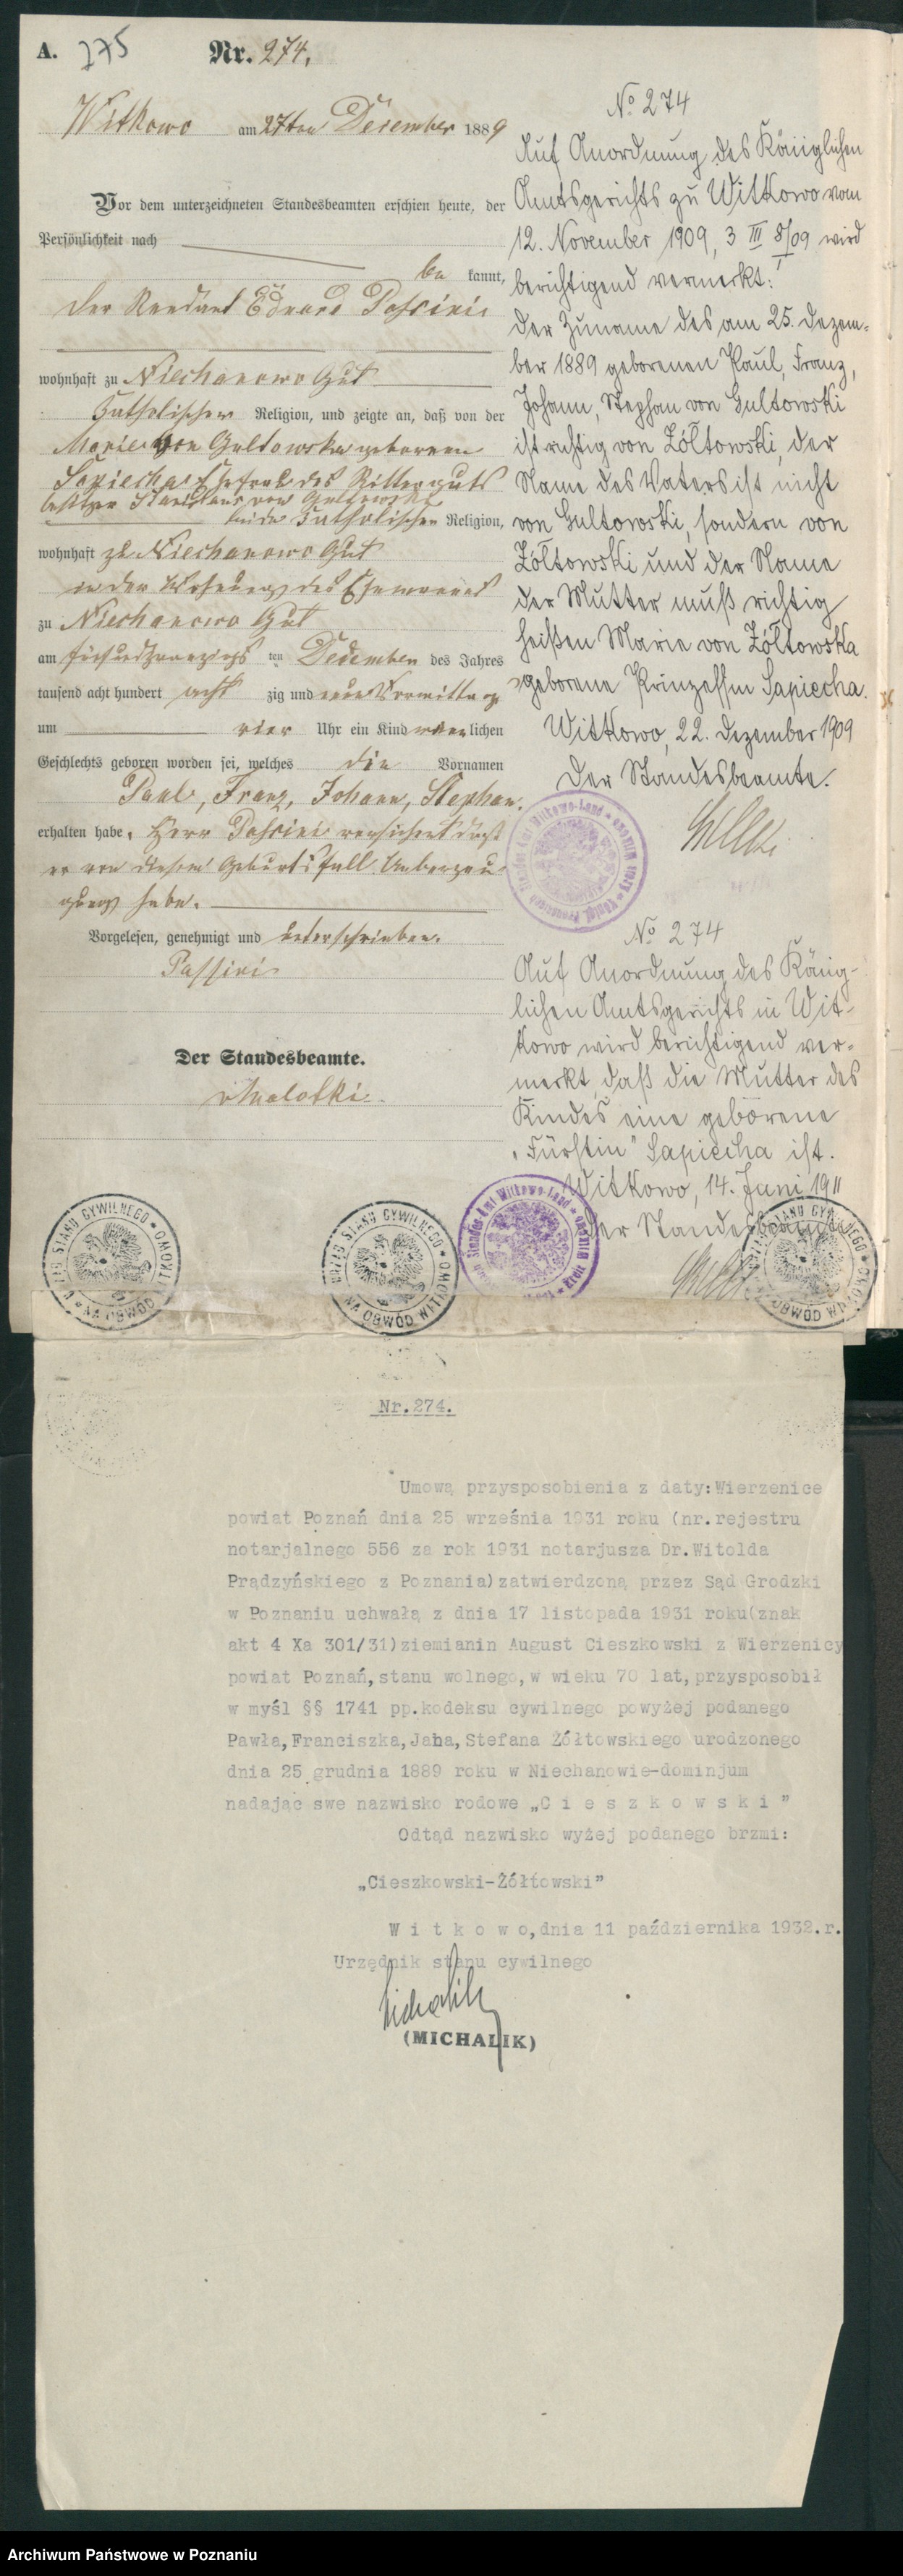 A. 275 Nr. 274.
Witkowo am 27ten Dezember 1889
Vor dem unterzeichneten Standesbeamten erschien heute, der
Persönlichkeit nach
be kannt,
der Rendant Eduard Passini
wohnhaft zu Niechanowo Gut
katholischer Religion, und zeigte an, daß von der
Marie von Gultowska geborenen
Sapiecha Ehefrau des Ritterguts
besitzer Stanislaus von Gultowski
beide katholischer Religion,
wohnhaft zu Niechanowo Gut
in der Wohnung des Ehemannes
zu Niechanowo Gut
am fünfundzwanzigs ten Dezember des Jahres
tausend acht hundert acht zig und neun Vormittags
um vier Uhr ein Kind männlichen
Geschlechts geboren worden sei, welches die Vornamen
Paul, Franz, Johann, Stephan.
erhalten habe. Herr Passini versichert daß
er von diesem Geburtsfall Ueberzeu-
gung habe.
Vorgelesen, genehmigt und unterschrieben.
Passini
Der Standesbeamte.
No 274
Auf Anordnung des Königlichen
Amtsgerichts zu Witkowo vom
12. November 1909, 3 III 8/09 wird
berichtigend vermerkt:
Der Zuname des am 25. Dezem-
ber 1889 geborenen Paul, Franz,
Johann, Stephan von Gultowski
ist richtig von Żółtowski, der
Name des Vaters ist nicht
von Gultowski, sondern von
Żółtowski und der Name
der Mutter muß richtig
heißen Marie von Żółtowska
geborene Prinzessin Sapiecha.
Witkowo, 22. Dezember 1909
Der Standesbeamte.
No 274
Auf Anordnung des König-
lichen Amtsgerichts in Wit-
kowo wird berichtigend ver-
merkt, daß die Mutter des
Kindes eine geborene
„Fürstin" Sapiecha ist.
Witkowo, 14. Juni 1911
Der Standesbeamte
Nr.274.
Umową przysposobienia z daty:Wierzenice
powiat Poznań dnia 25 września 1931 roku (nr.rejestru
notarjalnego 556 za rok 1931 notarjusza Dr.Witolda
Prądzyńskiego z Poznania)zatwierdzoną przez Sąd Grodzki
w Poznaniu uchwałą z dnia 17 listopada 1931 roku(znak
akt 4 Xa 301/31)ziemianin August Cieszkowski z Wierzenicy
powiat Poznań,stanu wolnego,w wieku 70 lat,przysposobił
w myśl §§ 1741 pp.kodeksu cywilnego powyżej podanego
Pawła,Franciszka,Jana,Stefana Żółtowskiego urodzonego
dnia 25 grudnia 1889 roku w Niechanowie-dominjum
nadając swe nazwisko rodowe „C i e s z k o w s k i ”
Odtąd nazwisko wyżej podanego brzmi:
„Cieszkowski-Żółtowski”
W i t k o w o,dnia 11 października 1932.r.
Urzędnik stanu cywilnego
(MICHALIK)
Archiwum Państwowe w Poznaniu